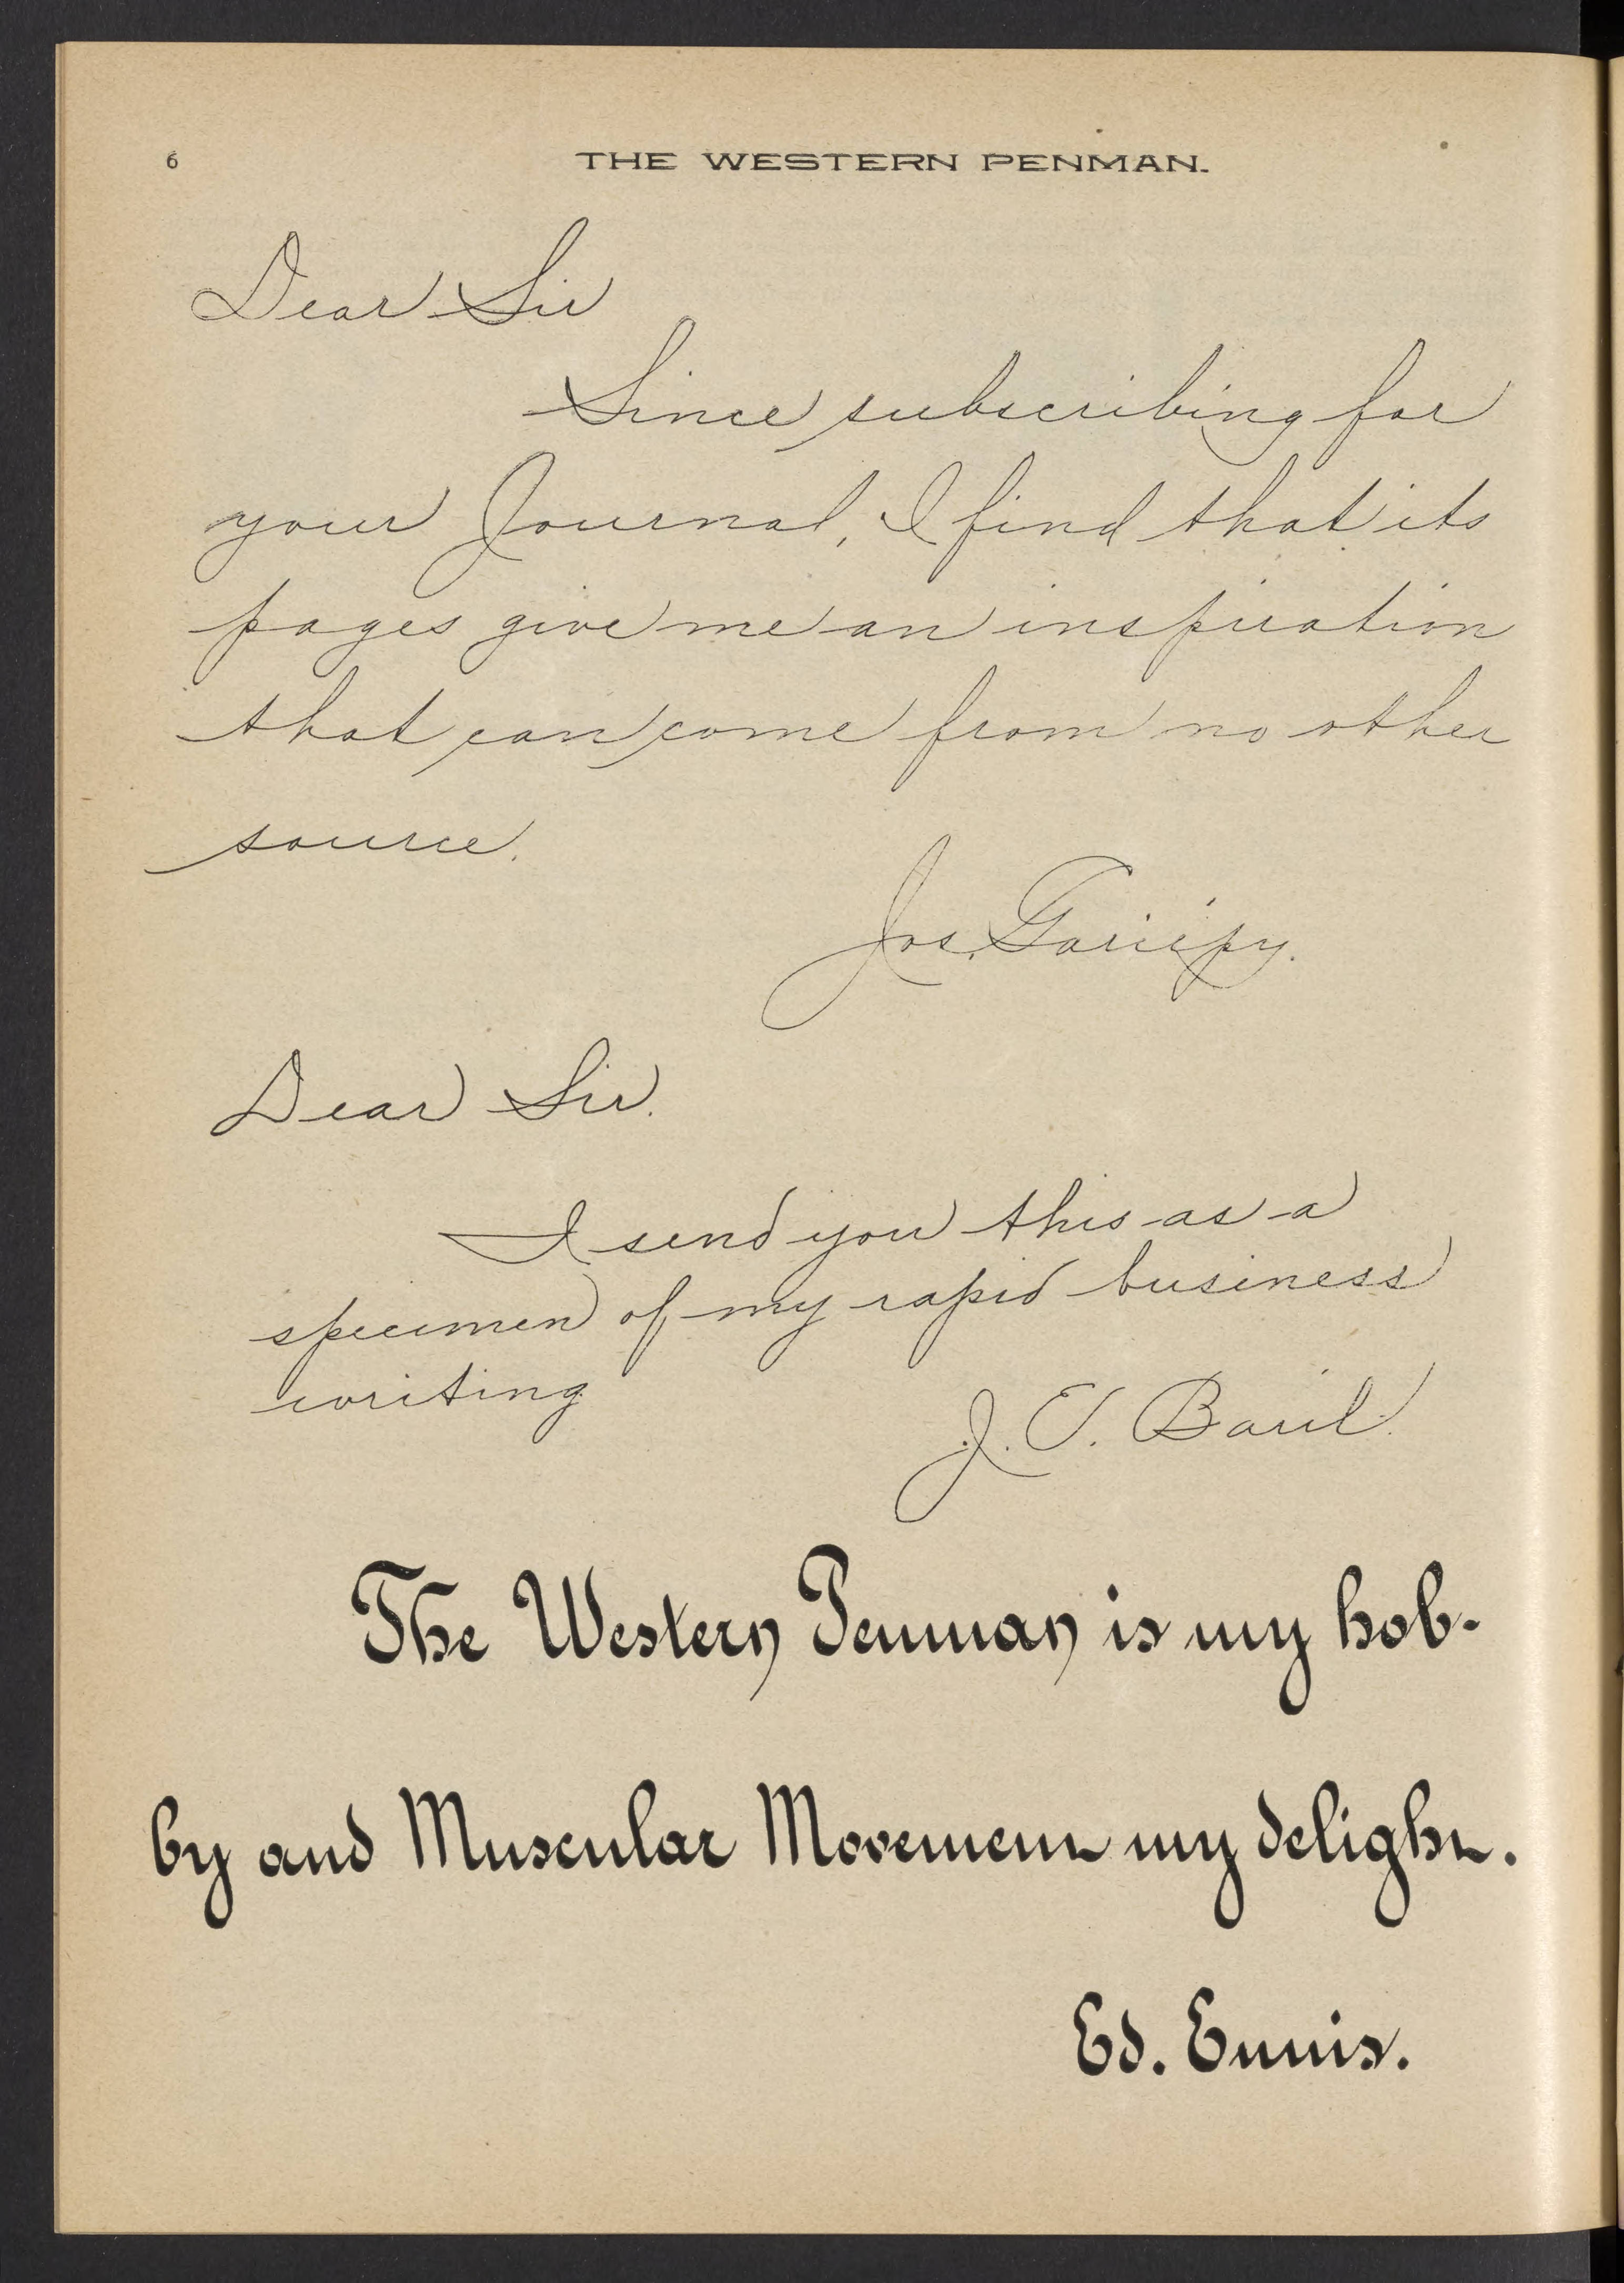 6
THE WESTERN PENMAN.
Dear Sir
Since subscribing for
your Journal, I find that its
pages give me an inspiration
that can come from no other
source.
Jos. Gariépy.
Dear Sir.
I send you this as a
specimen of my rapid business
writing
J. E. Baril.
The Western Penman is my hob-
by and Muscular Movement my delight.
Ed. Ennis.